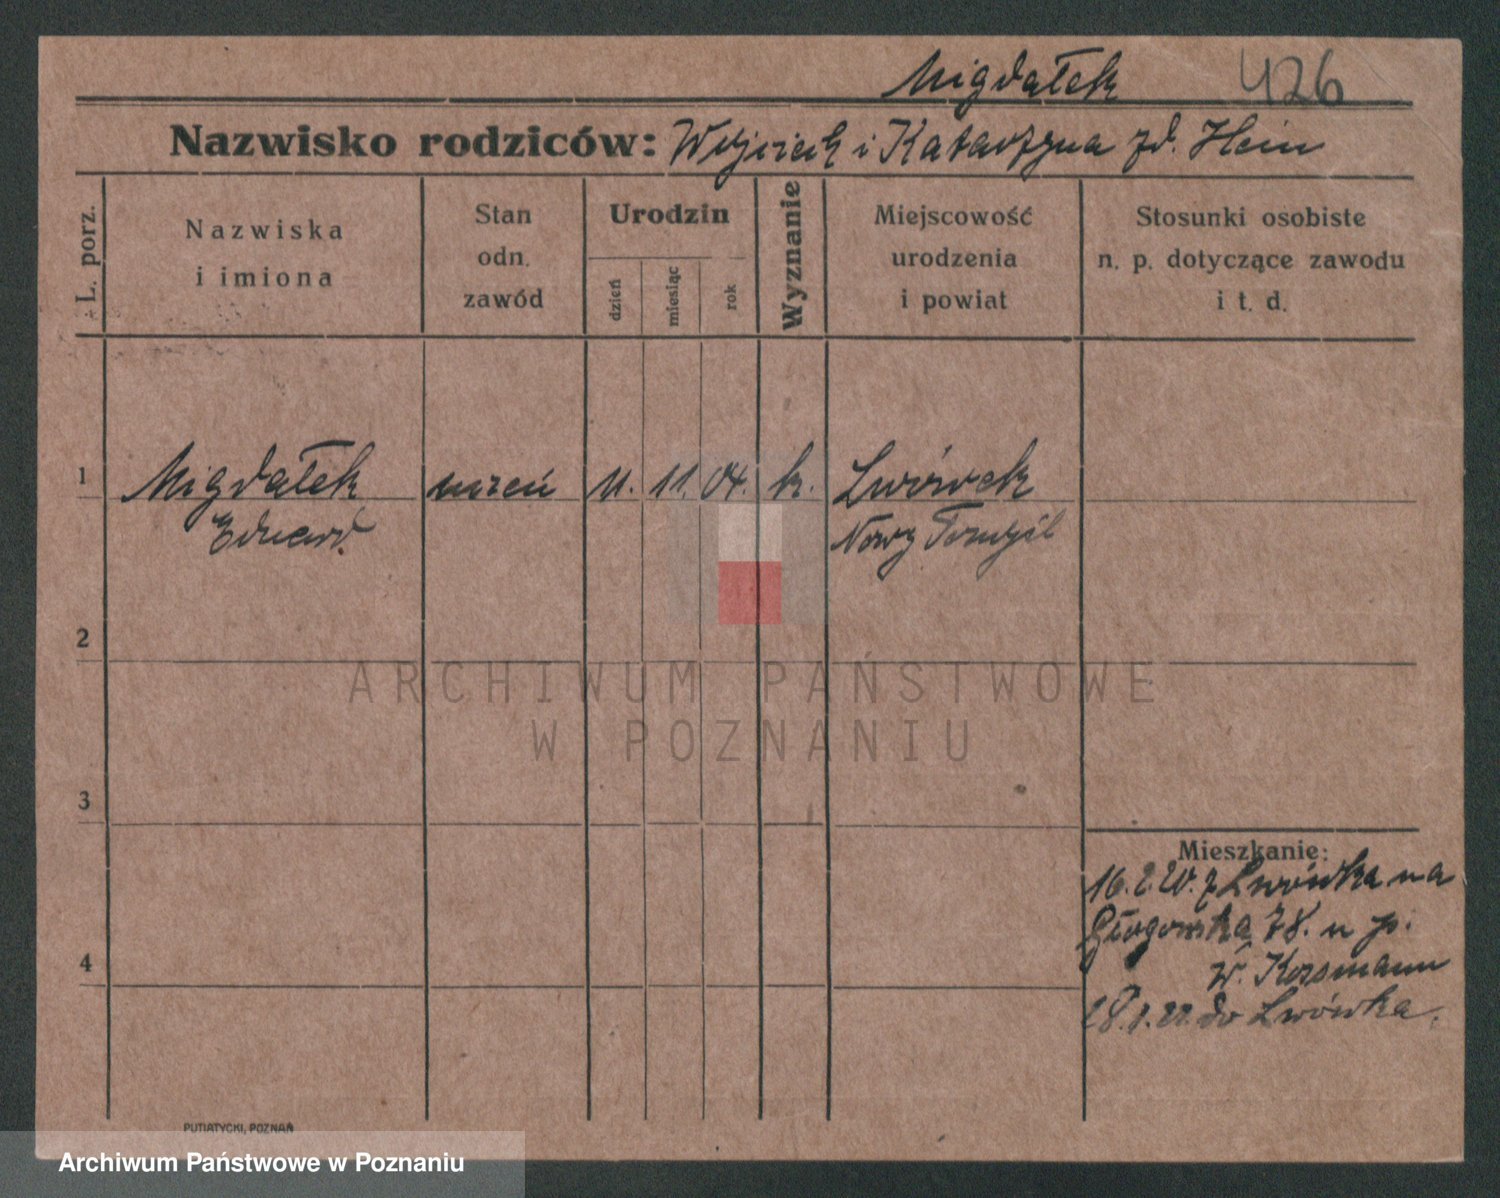 Migdałek 426
Nazwisko rodziców: Wojciech i Katarzyna zd. Hein
L. porz.
Nazwiska
i imiona
Stan
odn.
zawód
Urodzin
dzień
miesiąc
rok
Wyznanie
Miejscowość
urodzenia
i powiat
Stosunki osobiste
n. p. dotyczące zawodu
i t. d.
1 Migdałek uczeń 11. 11. 04. k. Lwówek
Eduard. Nowy Tomyśl
2
ARCHIWUM PAŃSTWOWE
W POZNANIU
3
Mieszkanie:
16.2.20. z Lwówka na
Głogowska 78. u p.
4
W. Kossmann
28.1.22. do Lwówka.
PUTIATYCKI, POZNAŃ
Archiwum Państwowe w Poznaniu